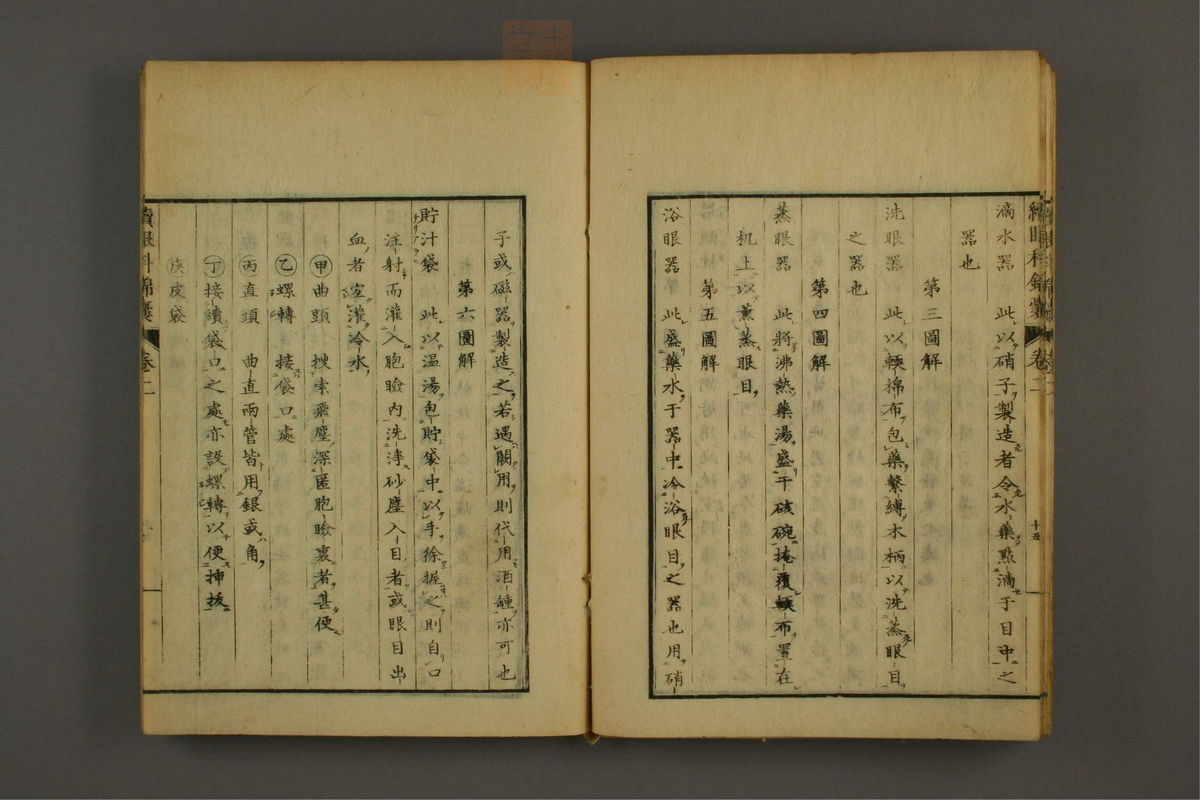 滴水器　此以硝子製造者令水藥點滴于目中之
器也
第三圖解
洗眼器　此以輭棉布包藥繫縛木柄以洗蒸眼目
之器也
第四圖解
蒸眼器　此將沸熱藥湯盛于磁碗掩覆輭布置在
机上以薰蒸眼目
第五圖解
浴眼器　此盛藥水于器中冷浴眼目之器也用硝
十五
子或磁器製造之若遇闕用則代用酒鍾亦可也
第六圖解
貯汁袋　此以温湯包貯袋中以手徐握之則自口
注射而灌入胞瞼内洗淨砂塵入目者或眼目出
血者宜灌冷水
甲曲頭　捜索飛塵深匿胞瞼裏者甚便
乙螺轉　接袋口處
丙直頭　曲直兩管皆用銀或角
丁接續袋口之處亦設螺轉以便挿拔
戊皮袋
續眼科錦囊　卷二